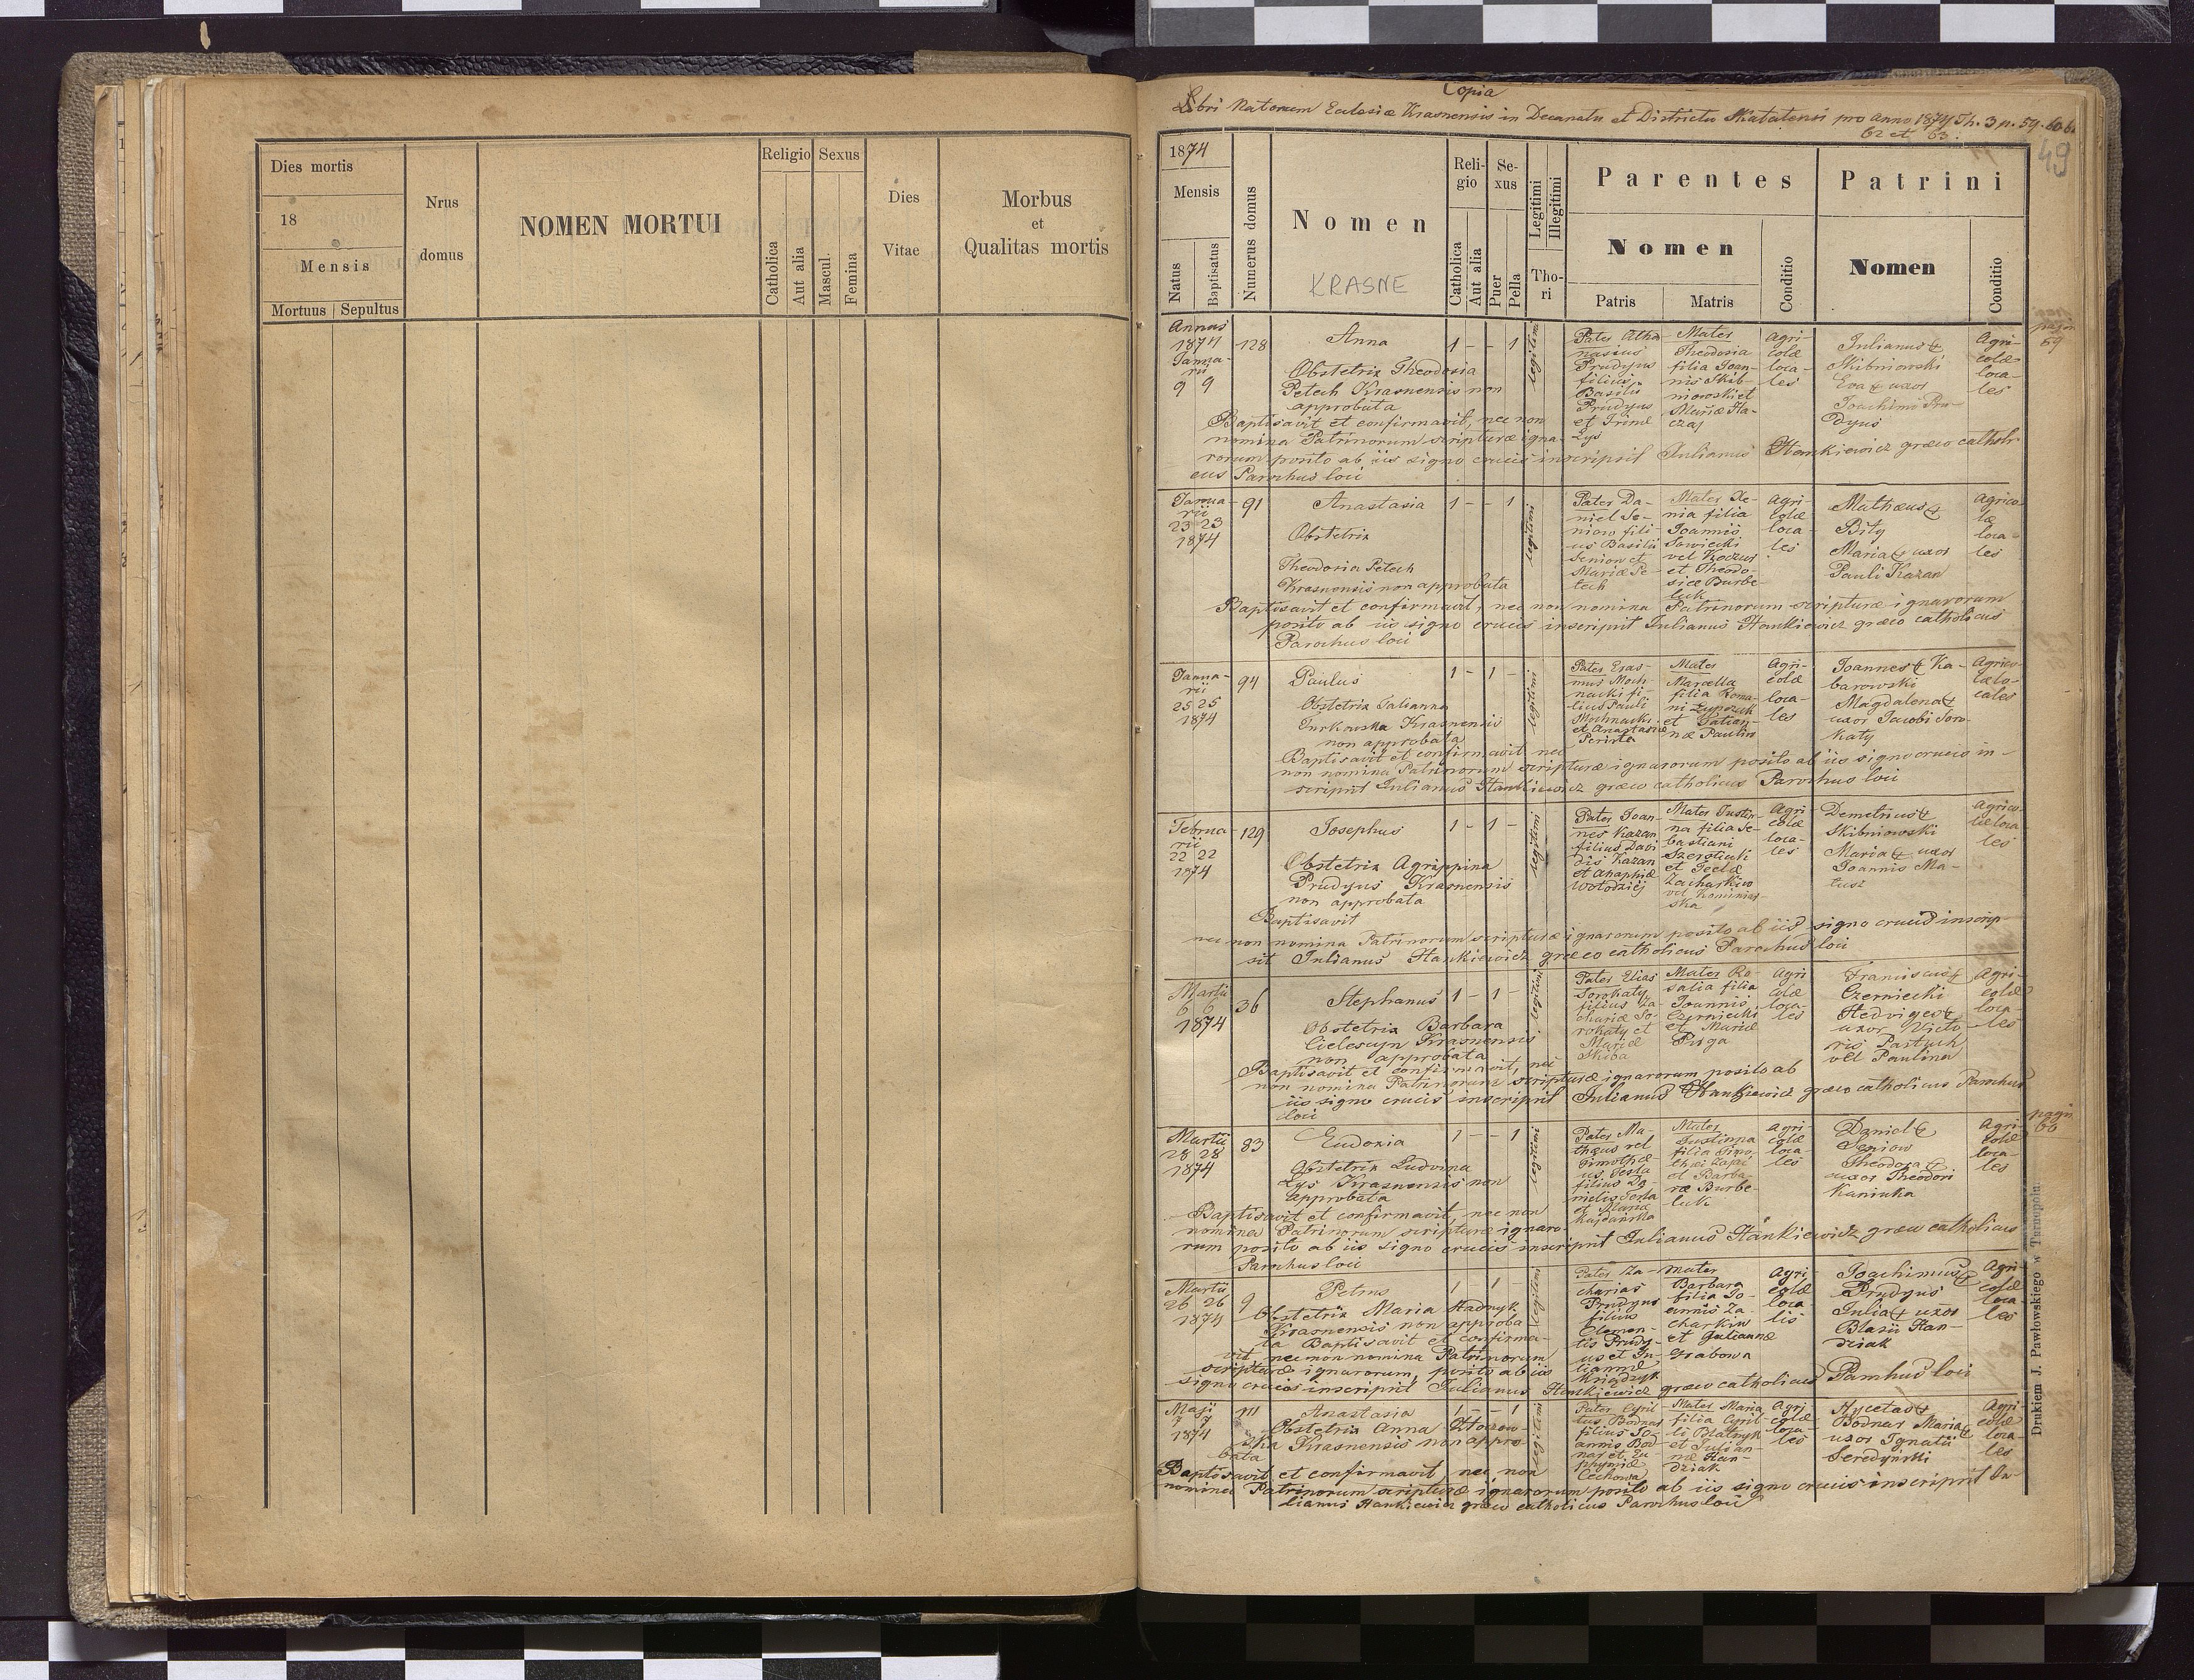 Dies mortis
18
Mensis
Mortuus Sepultus
Nrus
domus
NOMEN MORTUI
Religio
Catholica
Aut alia
Sexus
Mascul.
Femina
Dies
Vitae
Morbus
et
Qualitas mortis
Copia
Libri Natorum Ecclesiæ Krasnensis in Decanatu et Districtu Skalatensi pro anno 1874 Th. 3 p. 59. 60. 61
62 et 63.
49
1874
Mensis
Natus
Baptisatus
Numerus domus
Nomen
KRASNE
Reli-
gio
Catholica
Aut alia
Se-
xus
Puer
Pella
Legitimi
Illegitimi
Tho-
ri
Parentes
Nomen
Patris
Matris
Conditio
Patrini
Nomen
Conditio
Annus
1874
Janua-
rii
9 9
128
Anna
Obstetrix Theodosia
Petech Krasnensis non
approbata
1 - - 1
legitimi
Pater Atha-
nasius
Prudyus
filius
Basilii
Prudyus
et Irinæ
Lys
Mater
Theodosia
filia Joan-
nis Skib-
niowski et
Mariæ Ha-
czaj
Agri-
colæ
loca-
les
Julianus
Skibniowski
Eva uxor
Joachimi Pru-
dyus
Agri-
colæ
loca-
les
pagin
59
Baptisavit et confirmavit, nec non
nomina Patrinorum scripturæ igna-
rorum posito ab iis signo crucis inscripsit Julianus Hankiewicz græco catholi-
cus Parochus loci
Janua-
rii
23 23
1874
91
Anastasia
Obstetrix
Theodosia Petech
Krasnensis non approbata
1 - - 1
legitimi
Pater Da-
niel Se-
niow fili-
us Basilii
Seniow et
Mariæ Pe-
tech
Mater Xe-
nia filia
Joannis
Sowiecki
vel Koczus
et Theodo-
siæ Burbe-
luk
Agri-
colæ
loca-
les
Mathæus
Bily
Maria uxor
Pauli Kazan
Agrico-
læ
loca-
les
Baptisavit et confirmavit, nec non nomina Patrinorum scripturæ ignarorum
posito ab iis signo crucis inscripsit Julianus Hankiewicz græco catholicus
Parochus loci
Janua-
rii
25 25
1874
94
Paulus
Obstetrix Tatianna
Turkowska Krasnensis
non approbata
1 - 1 -
legitimi
Pater Eras-
mus Moch-
nacki fi-
lius Pauli
Mochnacki
et Anastasiæ
Mater
Marcella
filia Roma-
ni
et Tatian-
næ Paulin
Agri-
colæ
loca-
les
Joannes Ka-
barowski
Magdalena
uxor Jacobi Soro-
katy
Agrico-
læ lo-
cales
Baptisavit et confirmavit nec
non nomina Patrinorum scripturæ ignarorum posito ab iis signo crucis in-
scripsit Julianus Hankiewicz græco catholicus Parochus loci
Februa-
rii
22 22
1874
129
Josephus
Obstetrix Agrippina
Prudyus Krasnensis
non approbata
1 - 1 -
legitimi
Pater Joan-
nes Kazan
filius Davi-
dis Kazan
et Ahaphiæ
Wołodziej
Mater Justin-
na filia Se-
bastiani
et Teclæ
Zacharkiw
vel Kominiar-
ska
Agri-
colæ
loca-
les
Demetrius
Skibniowski
Maria uxor
Joannis Ma-
tusz
Agrico-
læ loca
les
Baptisavit
nec non nomina Patrinorum scripturæ ignarorum posito ab iis signo crucis inscrip-
sit Julianus Hankiewicz græco catholicus Parochus loci
Martii
6 6
1874
36
Stephanus
Obstetrix Barbara
Cielescyn Krasnensis
non approbata
1 - 1 -
legitimi
Pater Elias
Sorokaty
filius Za-
chariæ So-
rokaty et
Mariæ
Skiba
Mater Ro-
salia filia
Joannis
Czerniecki
et Mariæ
Puga
Agri
colæ
loca-
les
Franciscus
Czerniecki
Hedviges
uxor Victo-
ris Pastuch
vel Paulina
Agri-
colæ
loca-
les
Baptisavit et confirmavit, nec
non nomina Patrinorum scripturæ ignarorum posito ab
iis signo crucis inscripsit Julianus Hankiewicz græco catholicus Parochus
loci
Martii
28 28
1874
83
Eudoxia
Obstetrix Ludvina
Lys Krasnensis non
approbata
1 - - 1
legitimi
Pater Ma-
thæus vel
Timothæ-
us Testa
filius Da-
nielis Testa
et Mariæ
Kajdańska
Mater
Justinna
filia Timo-
thæi Zajac
et Barba-
ræ Burbe-
luk
Agri-
colæ
loca-
les
Daniel
Seniow
Theodora
uxor Theodori
Kaniuka
Agri-
colæ
loca-
les
pagin
60
Baptisavit et confirmavit, nec non
nomina Patrinorum scripturæ ignaro-
rum posito ab iis signo crucis inscripsit Julianus Hankiewicz græco catholicus
Parochus loci
Martii
26 26
1874
9
Petrus
Obstetrix Maria Hadnyk
Krasnensis non approba-
ta Baptisavit et confirma-
vit nec non nomina Patrinorum
scripturæ ignarorum, posito ab iis
signo crucis inscripsit Julianus Hankiewicz græco catholicus Parochus loci
1 - 1 -
legitimi
Pater Za-
charias
Prudyus
filius
Clemen-
tis Prudy-
us et Ju-
liannæ
Mater
Barbara
filia Jo-
annis Za-
charkiw
et Julianne
Grabowa
Agri
colæ
loca
lis
Joachimus
Prudyus
Julia uxor
Blasii Han-
dziak
Agri-
colæ
loca-
les
Maji
7 7
1874
111
Anastasia
Obstetrix Anna Złoczow-
ska Krasnensis non appro-
bata
1 - - 1
legitimi
Pater Cyril-
lus Bodnar
filius Jo-
annis Bod-
nar et Eu-
phymiæ
Cechowa
Mater Maria
filia Cyril-
li Blatnyk
et Julian-
næ Han-
dziak
Agri
colæ
loca-
les
Nycetas
Bodnar Maria
uxor Ignatii
Seredynski
Agri
colæ
loca-
les
Baptisavit et confirmavit, nec non
nomina Patrinorum scripturæ ignarorum posito ab iis signo crucis inscripsit Ju-
lianus Hankiewicz græco catholicus Parochus loci
Drukiem J. Pawłowskiego w Tarnopolu.